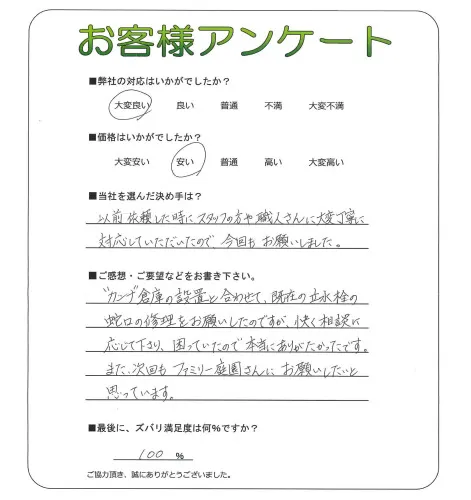 お客様アンケート
■弊社の対応はいかがでしたか？
大変良い 良い 普通 不満 大変不満
■価格はいかがでしたか？
大変安い 安い 普通 高い 大変高い
■当社を選んだ決め手は？
以前依頼した時にスタッフの方や職人さんに大変丁寧に
対応していただいたので、今回もお願いしました。
■ご感想・ご要望などをお書き下さい。
倉庫の設置と合わせて、既存の立水栓の
蛇口の修理をお願いしたのですが、快く相談に
応じて下さり、困っていたので本当にありがたかったです。
また、次回もファミリー庭園さんにお願いしたいと
思っています。
■最後に、ズバリ満足度は何%ですか？
100 %
ご協力頂き、誠にありがとうございました。